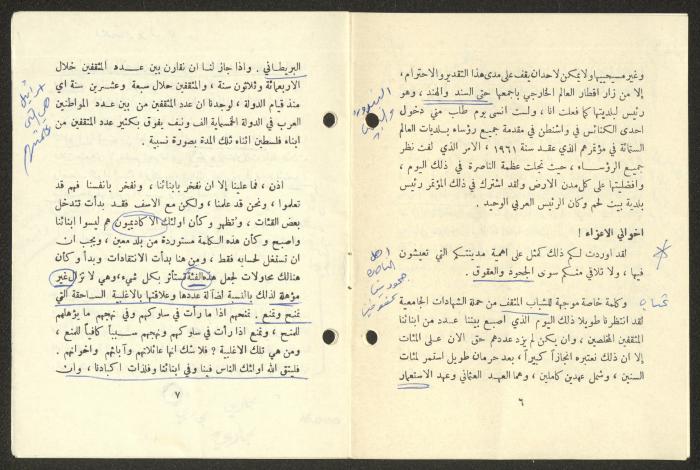 وغير مسيحييها ولا يمكن لاحد ان يقف على مدى هذا التقدير والاحترام ،
إلا من زار اقطار العالم الخارجي باجمعها حتى السند والهند ، وهو
رئيس لبلديتها كما فعلت انا ، ولست انسى يوم طاب مني دخول
احدى الكنائس في واشنطن في مقدمة جميع رؤساء بلديات العالم
الستمائة في مؤتمرهم الذي عقد سنة ١٩٦١ ، الامر الذي لفت نظر
جميع الرؤساء ، حيث تجلت عظمة الناصرة في ذلك اليوم ،
وافضليتها على كل مدن الارض ولقد اشترك في ذلك المؤتمر رئيس
بلدية بيت لحم وكان الرئيس العربي الوحيد .
اخواني الاعزاء !
لقد اوردت لكم ذلك كمثل على اهمية مدينتكم التي تعيشون
فيها ، ولا تلاقي منكم سوى الجحود والعقوق .
وكلمة خاصة موجهة للشباب المثقف من حملة الشهادات الجامعية
لقد انتظرنا طويلا ذلك اليوم الذي اصبح بيننا عدد من ابنائنا
المثقفين المخلصين ، وان يكن لم يزد عددهم حتى الان على المئات
إلا ان ذلك نعتبره انجازاً كبيراً ، بعد حرمان طويل استمر لمئات
السنين ، وشمل عهدين كاملين ، وهما العهد العثماني وعهد الاستعمار
٦
البريطاني . واذا جاز لنا ان نقارن بين عدد المثقفين خلال
الاربعمائة وثلاثون سنة ، والمثقفين خلال سبعة وعشرين سنة اي
منذ قيام الدولة ، لوجدنا ان عدد المثقفين من بين عدد المواطنين
العرب في الدولة الخمسماية الف ونيف يفوق بكثير عدد المثقفين من
ابناء فلسطين اثناء تلك المدة بصورة نسبية .
اذن ، فما علينا إلا ان نفخر بابنائنا ، ونفخر بانفسنا فهم قد
تعلموا ، ونحن قد علمنا ، ولكن مع الاسف فقد بدأت تتدخل
بعض الفئات ، وتظهر وكأن اولئك الاكاديميون هم ليسوا ابنائنا
واصبح وكأن هذه الكلمة مستوردة من بلد معين ، ويجب ان
تستغل لحسابه فقط ، ومن هنا بدأت الانتقادات وبدأ وكأن
هنالك محاولات لجعل هذه الفئة تستأثر بكل شيء ، وهي لا تزال غير
مؤهلة لذلك بالنسبة لضآلة عددها وعلاقتها بالاغلبية الساحقة التي
تمنح وتمنع . تمنحهم اذا ما رأت في سلوكهم وفي نهجهم ما يؤهلهم
للمنح ، وتمنع اذا رأت في سلوكهم ونهجهم سبباً كافياً للمنع ،
ومن هي تلك الاغلبية ؟ فلا شك انها عائلاتهم وآبائهم واخوانهم .
فليتق الله اولئك الناس فينا وفي ابنائنا وفلذات اكبادنا ، وان
٧